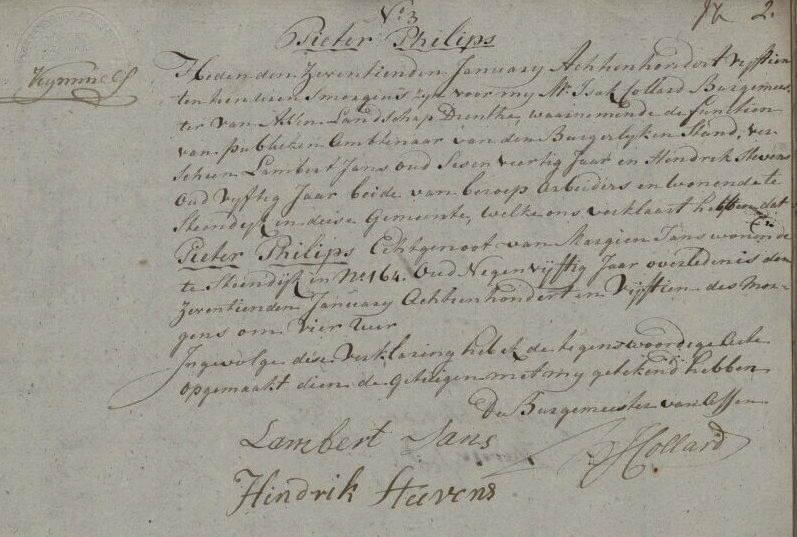 No 3
2.
Pieter Philips
Heden den Zeventienden January Achttienhonderd Vyftien
ten tien uren Smorgens zyn voor my Mr. Isak Collard Burgemees-
ter van Assen Landschap Drenthe, waarnemende de functien
van publieken Ambtenaar van den Burgerlyken Stand, ver-
scheen Lambert Jans oud Sesen veertig Jaar en Hindrik Stevens
oud vyftig Jaar beide van beroep Arbeiders en wonende te
Steendyk in deese Gemeente, welke ons verklaart hebben dat
Pieter Philips Echtgenoot van Margien Jans wonende
te Steendyk in No 164. Oud Negen vyftig Jaar overleden is den
Zeventienden January Achttienhondert en Vyftien des mor-
gens om Vier Uur
Ingevolge dese Verklaring heb ik de tegenswoordige Acte
opgemaakt dien de Getuigen met my getekend hebben
De Burgemeester van Assen
Lambert Jans
Collard
Hindrik Steevens